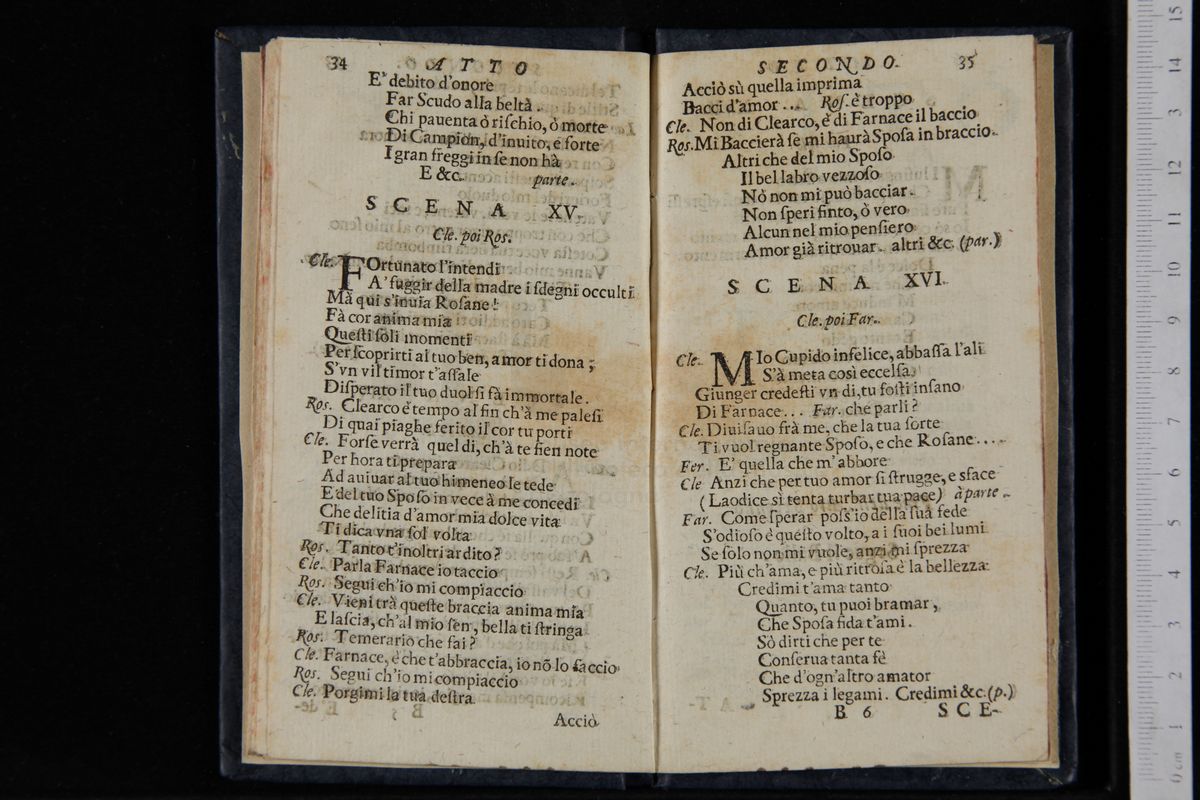 34 ATTO
E' debito d'onore
Far Scudo alla beltà.
Chi pauenta ò rischio, ò morte
Di Campion, d'inuito, e forte
I gran freggi in se non hà
E &c. parte.
SCENA XV.
Cle. poi Ros.
Cle. FOrtunato l'intendi
A' fuggir della madre i sdegni occulti
Mà qui s'inuia Rosane!
Fà cor anima mia
Questi soli momenti
Per scoprirti al tuo ben, amor ti dona;
S'vn vil timor t'assale
Disperato il tuo duol si fà immortale.
Ros. Clearco è tempo al fin ch'à me palesi
Di quai piaghe ferito il cor tu porti
Cle. Forse verrà quel dì, ch'à te fien note
Per hora ti prepara
Ad auiuar al tuo himeneo le tede
E del tuo Sposo in vece à me concedi
Che delitia d'amor mia dolce vita
Ti dica vna sol volta
Ros. Tanto t'inoltri ardito?
Cle. Parla Farnace io taccio
Ros. Segui ch'io mi compiaccio
Cle. Vieni trà queste braccia anima mia
E lascia, ch'al mio sen, bella ti stringa
Ros. Temerario che fai?
Cle. Farnace, è che t'abbraccia, io nõ lo faccio
Ros. Segui ch'io mi compiaccio
Cle. Porgimi la tua destra
Acciò
SECONDO. 35
Acciò sù quella imprima
Bacci d'amor... Ros. è troppo
Cle. Non di Clearco, è di Farnace il baccio
Ros. Mi Baccierà se mi haurà Sposa in braccio.
Altri che del mio Sposo
Il bel labro vezzoso
Nò non mi può bacciar.
Non speri finto, ò vero
Alcun nel mio pensiero
Amor già ritrouar. altri &c. (par.)
SCENA XVI.
Cle. poi Far.
Cle. MIo Cupido infelice, abbassa l'ali
S'à meta così eccelsa.
Giunger credesti vn dì, tu fosti insano
Di Farnace... Far. che parli?
Cle. Diuisauo frà me, che la tua sorte
Ti vuol regnante Sposo, e che Rosane....
Fer. E' quella che m'abbore
Cle Anzi che per tuo amor si strugge, e sface
(Laodice sì tenta turbar tua pace) à parte.
Far. Come sperar poss'io della sua fede
S'odioso è questo volto, a i suoi bei lumi
Se solo non mi vuole, anzi mi sprezza
Cle. Più ch'ama, e più ritrosa è la bellezza
Credimi t'ama tanto
Quanto, tu puoi bramar,
Che Sposa fida t'ami.
Sò dirti che per te
Conserua tanta fè
Che d'ogn'altro amator
Sprezza i legami. Credimi &c. (p.)
B 6 SCE-